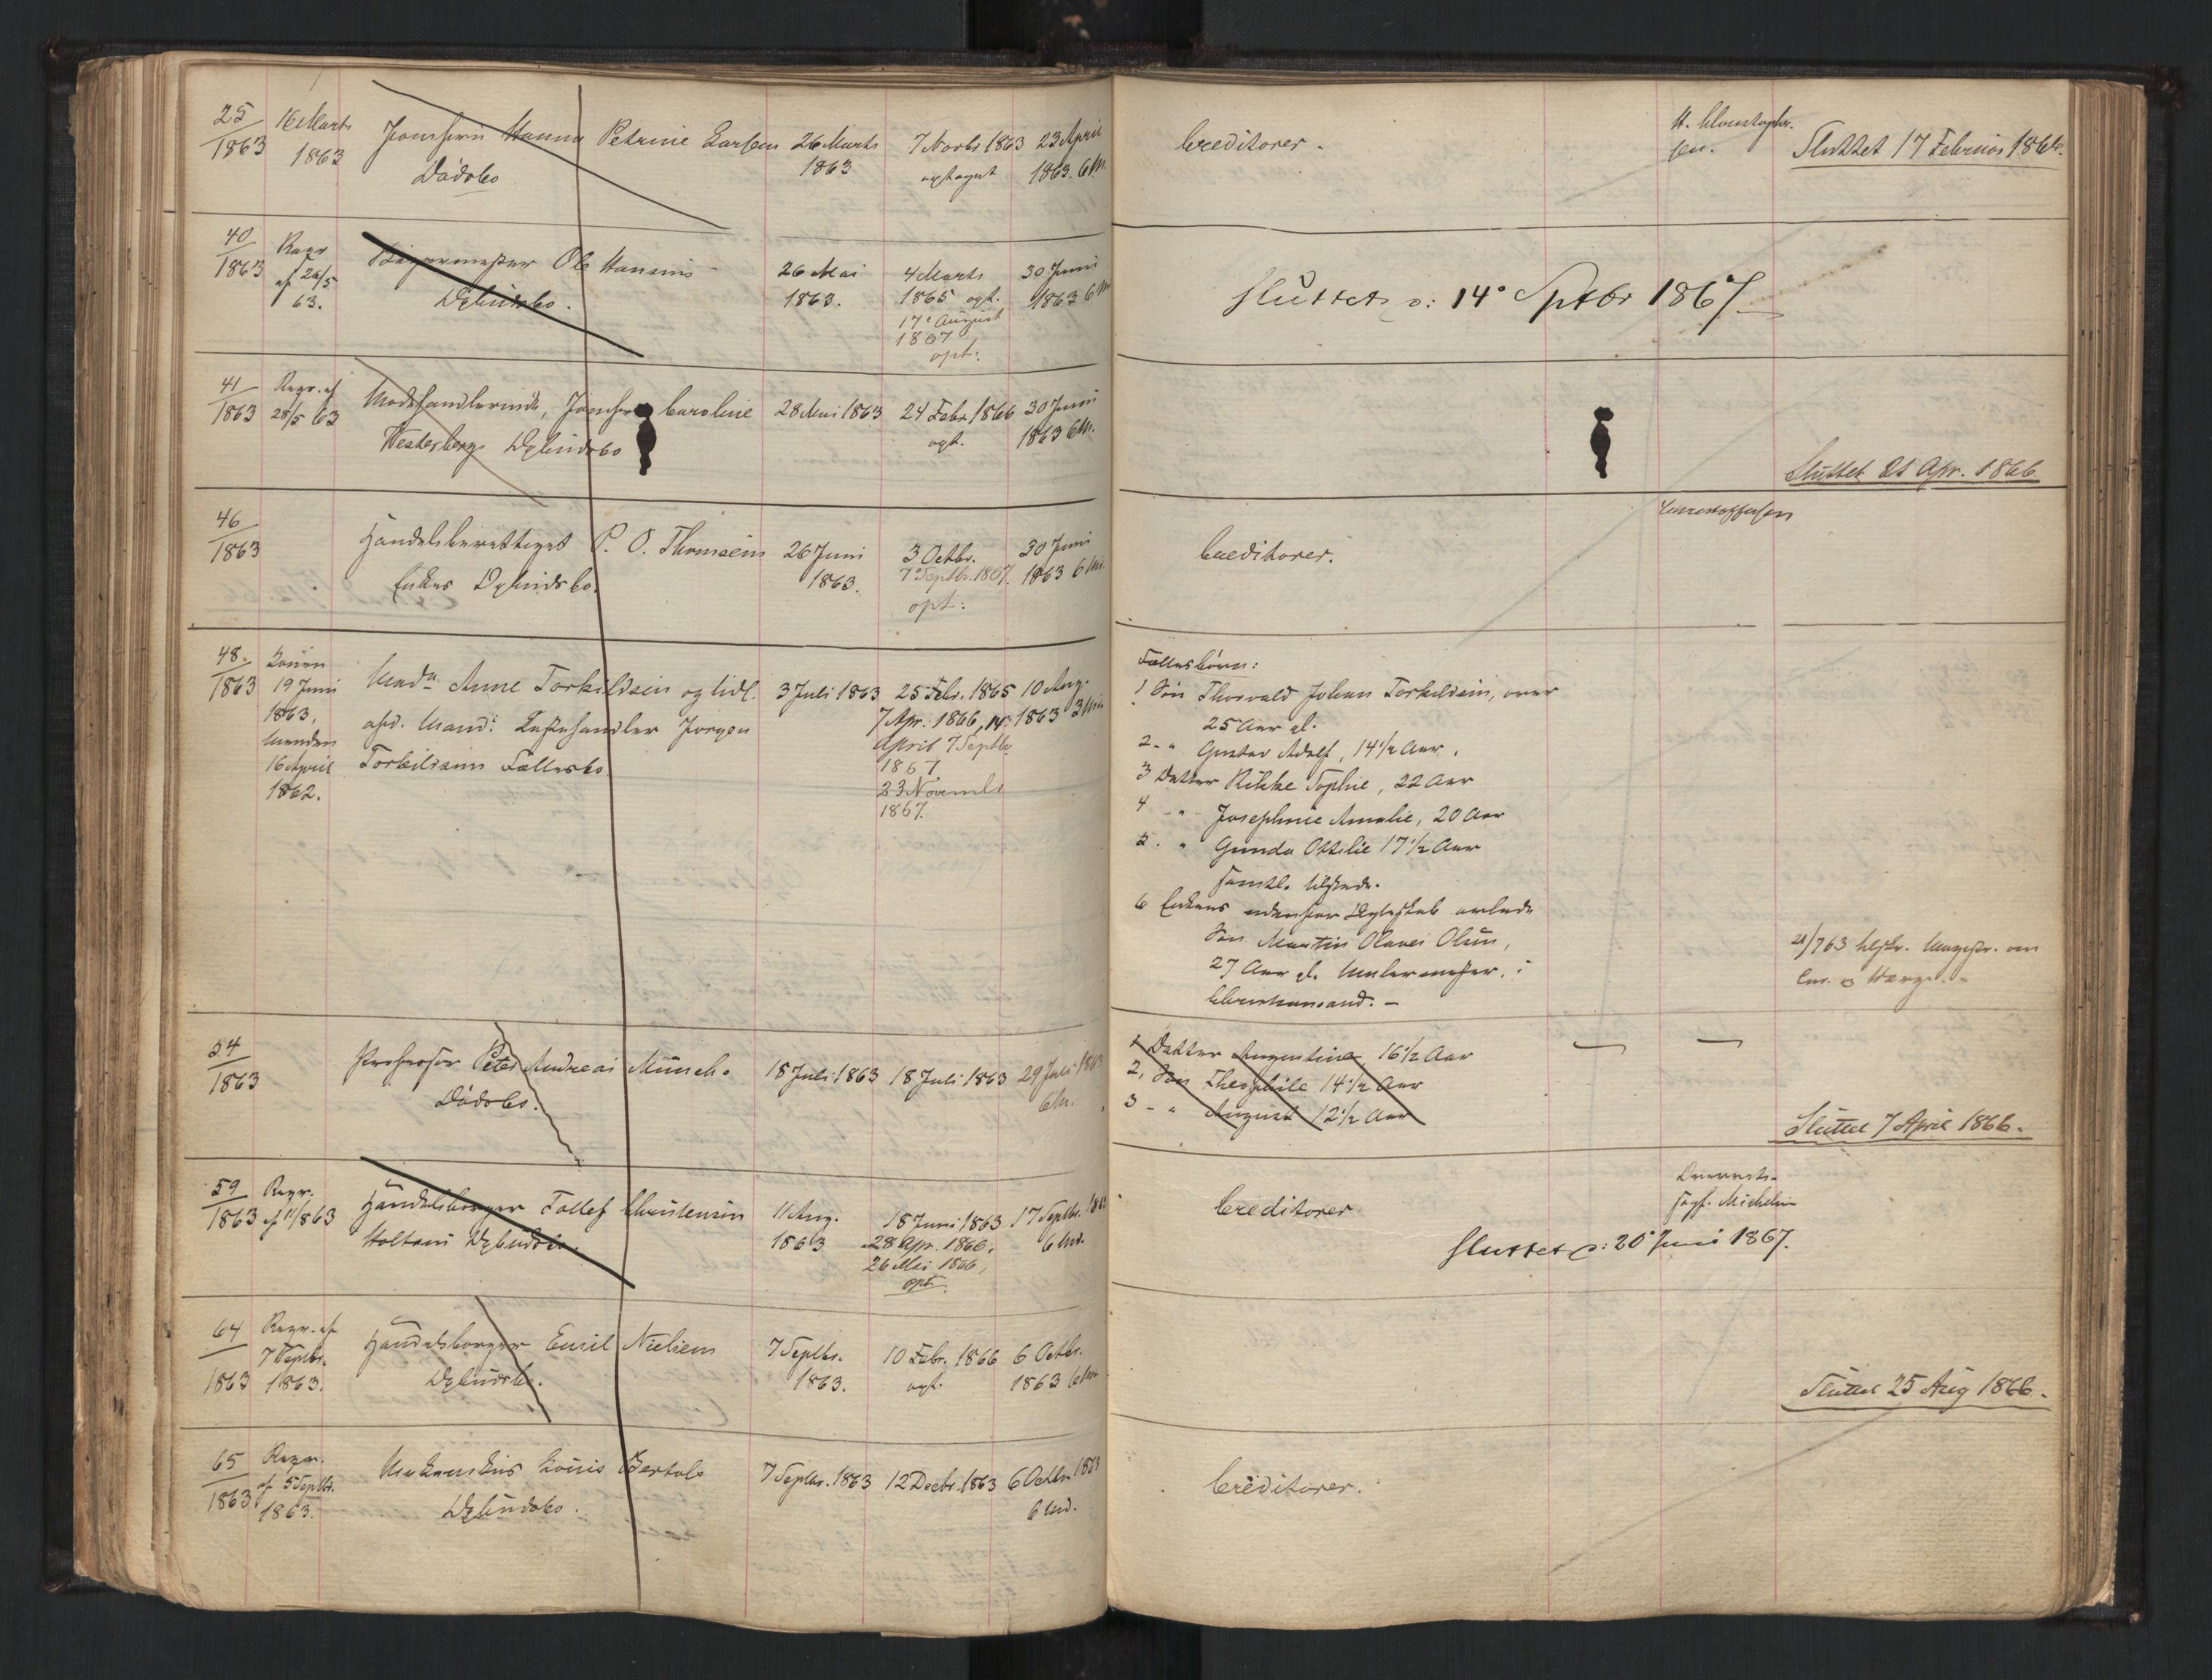 25
1863
16 Marts
1863
Jomfru Hanna Petrine Larsen
Dødsbo
26 Marts
1863
7 Novbr 1863
optaget
23 April
1863. 6 M.
Creditorer.
H. Christopher-
sen.
Sluttet 17 Februar 1866.
40
1863
Reqv
af 26/5
63.
Bagermester Ole Hansens
Opbudsbo.
26 Mai
1863.
4 Marts
1865 opt.
17de August
1867
opt:
30 Juni
1863 6 M
Sluttet d: 14de Septbr 1867
41
1863
Reqv. af
28/5 63
Modehandlerinde, Jomfru Caroline
Westerbergs Opbudsbo
28 Mai 1863
24 Febr 1866
opt.
30 Juni
1863 6 M.
Sluttet 21 Apr. 1866.
46
1863
Handelsberettiget P. O. Thomsens
Enkes Opbudsbo.
26 Juni
1863.
3 Octbr.
7 Septbr. 1867.
opt:
30 Juni
1863 6 M.
Creditorer.
Christophersen
48.
1863
Konen
19 Juni
1863,
Manden
16 April
1862.
Mada Anne Torkildsen og tidl.
afd. Mand: Jørgen
Torkildsens Fællesbo
3 Juli 1863
25 Febr. 1865
7 Apr. 1866, 14
April 7 Septbr
1867
23 Novembr
1867.
10 Aug.
1863 3 M
Fællesbørn:
1 Søn Thorvald Johan Torkildsen, over
25 Aar gl.
2 - " Gustav Adolf, 14 1/2 Aar,
3 Datter Rikke Sophie, 22 Aar
4 - " Josephine Amalie, 20 Aar
5. " Gunda Ottilie 17 1/2 Aar
samtl. tilstede.
6 Enkens udenfor Ægteskab avlede
Søn Martin Olaves Olsen,
27 Aar gl. Malermester, i
Christiansand. -
21/7 63
54
1863
Professor Peter Andreas Munchs
Dødsbo.
18 Juli 1863
18 Juli 1863
29 Juli 1863
6 M.
1 Datter 16 1/2 Aar
2, Søn Theophile 14 1/2 Aar
3 - " August 12 1/2 Aar
Sluttet 7 April 1866.
59
1863
Reqv.
af 11/8 63
Handelsborger Tollef Christensen
Holtans Opbudsbo.
11 Aug.
1863
18 Juni 1863
28 Apr. 1866,
26 Mai 1866,
opt.
17 Septbr. 1863
6 Md.
Creditorer
Overrets-
sagf. Michelsen
Sluttet d: 20de Juni 1867.
64
1863
Reqv. af
7 Septbr.
1863.
Handelsborger Emil Nielsens
Opbudsbo.
7 Septbr.
1863.
10 Febr. 1866
opt.
6 Octbr.
1863 6 M
Sluttet 25 Aug 1866.
65
1863
Reqv.
af 5 Septbr.
1863.
Louis Bertols
Opbudsbo.
7 Septbr. 1863
12 Decbr. 1863
6 Octbr. 1863
6 Md.
Creditorer.